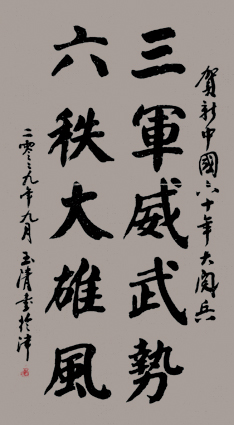 賀新中國六十年大閱兵
三軍威武勢
六秩大雄風
二零零九年九月玉清書於津